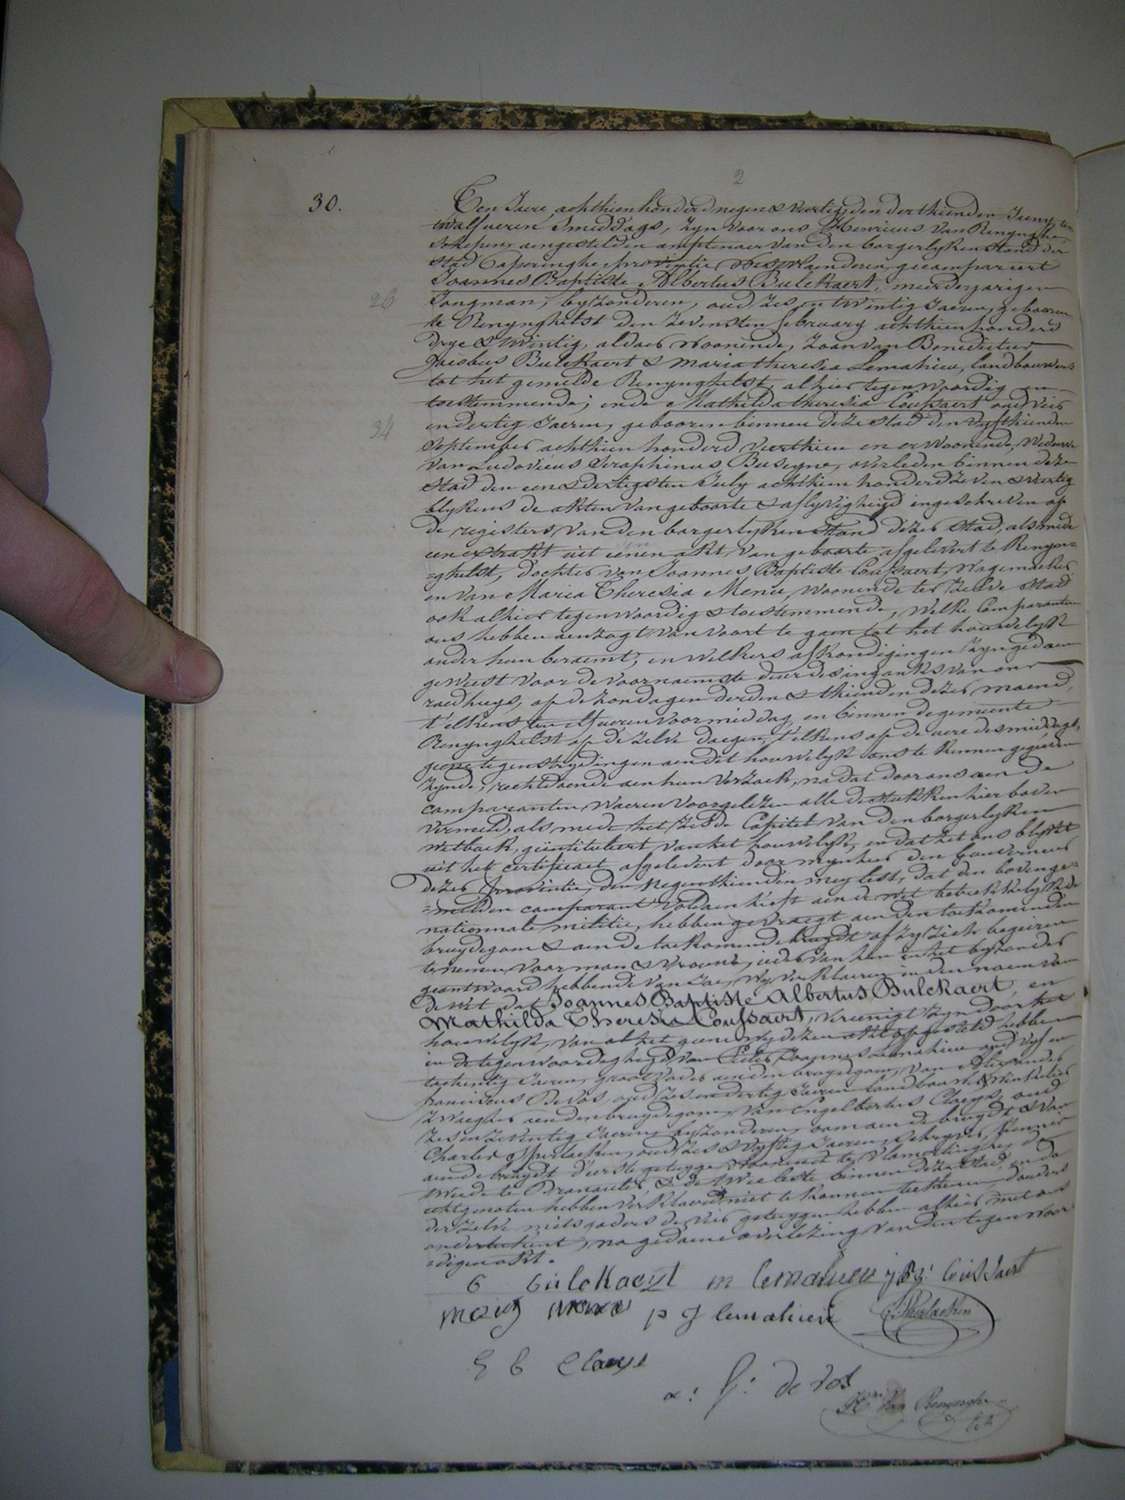 2
30.
Ten Jaere achthien honderd negen & veertig, den derthienden Juny, ten
twalf ueren 's middags, zyn voor ons Henricus Van Renynghe
Schepene aengestelden amptenaer van den borgerlyken stand der
stad Poperinghe provintie Westvlaenderen, gecompareert
Joannes Baptiste Albertus Bulckaert, meerderjarigen
26 Jongman, byzonderen, oud zes en twintig Jaeren, gebooren
te Renynghelst den zevensten february achthien honderd
drye & twintig, aldaer woonende, Zoon van Benedictus
Jacobus Bulckaert & Maria theresia Lemahieu, landbouwers
tot het gemelde Renynghelst, alhier tegenwoordig en
toestemmende; ende Mathilda theresia Coussaert oud vier
34 en dertig Jaeren, gebooren binnen deze stad den vyfthienden
September achthien honderd veerthien en er woonende, Weduwe
van Ludovicus Seraphinus Beseyne, overleden binnen deze
Stad den een & dertigsten July achthien honderd zeven & veertig
blykens de akten van geboorte & aflyvigheyd ingeschreven op
de registers van den borgerlyken Stand dezer Stad, als mede
een extrakt uit eenen akt van geboorte afgelevert te Renyn-
-ghelst, dochter van Joannes Baptiste Coussaert, Wagemaeker
en van Maria Theresia Menu, woonende ter zelve stad
ook alhier tegenwoordig & toestemmende, welke Comparanten
ons hebben aenzogt van voort te gaen tot het houwelyk
onder hun beraemt, en welkers afkondigingen zyn gedaen
geweest voor de voornaemste deur des ingankes van ons
raedhuys, op de zondagen derden & thienden dezer maend,
t'elkens ten elf ueren voormiddag, en binnen de gemeente
Renynghelst op de zelve daegen, t'elkens op de uere des middags,
geene tegenstrydingen aen dit houwelyk ons te kennen gegeven
zynde, rechtdoende aen hun verzoek, na dat door ons aen de
comparanten waeren voorgelezen alle de stukken hier boven
vermeld, als mede het zesde Capitel van den borgerlyken
wetboek, geintituleert van het houwelyk, en dat het ons blykt
uit het certificaet afgelevert door mynheer den Gouverneur
dezer provintie, den negenthienden mey lest, dat den bovenge-
-melden comparant voldaen heeft aen de wet betrekkelyk de
nationnale militie, hebben gevraegt aen den toekomenden
bruydegom & aen de toekomende bruydt of zy zich begeeren
te nemen voor man & vrouw, ieder van hen in het byzonder
geantwoord hebbende van Jae, Wy verklaeren in den naem van
de wet dat Joannes Baptiste Albertus Bulckaert, en
Mathilda Theresia Coussaert, vereenigt zyn door het
houwelyk, van al het gene wy dezen akt opgesteld hebben
in de tegenwoordigheyd van Pieter Joannes Lemahieu oud vyf en
tachentig Jaeren, grootvader aen den bruydegom, van Alexander
franciscus De Vos oud zes en dertig Jaeren landbouwer & winkelier
zwaeger aen den bruydegom, van Engelbertus Claeys, oud
zes en zeventig Jaeren, byzonderen, oom aen de bruydt & van
Charles Spurlaeken, oud zes & vyftig Jaeren, Schryver,
aen de bruydt d'eerste getuyge woonende te Vlamertinghe, de
tweede te Dranouter, & de twee leste binnen deze stad, en de
echtgenoten hebben verklaerd niet te konnen teekenen, d'ouders
der zelve, nietsaders de vier getuygen hebben alhier met ons
onderteekent, na gedaene voorlezing van den tegenwoor-
-digen akt.
B Bulckaert m lemahieu j B: Coussaert
maria menu p J lemahieu C Spurlaeken
E B Claeys
a: f: de vos
Hri Van Renynghe